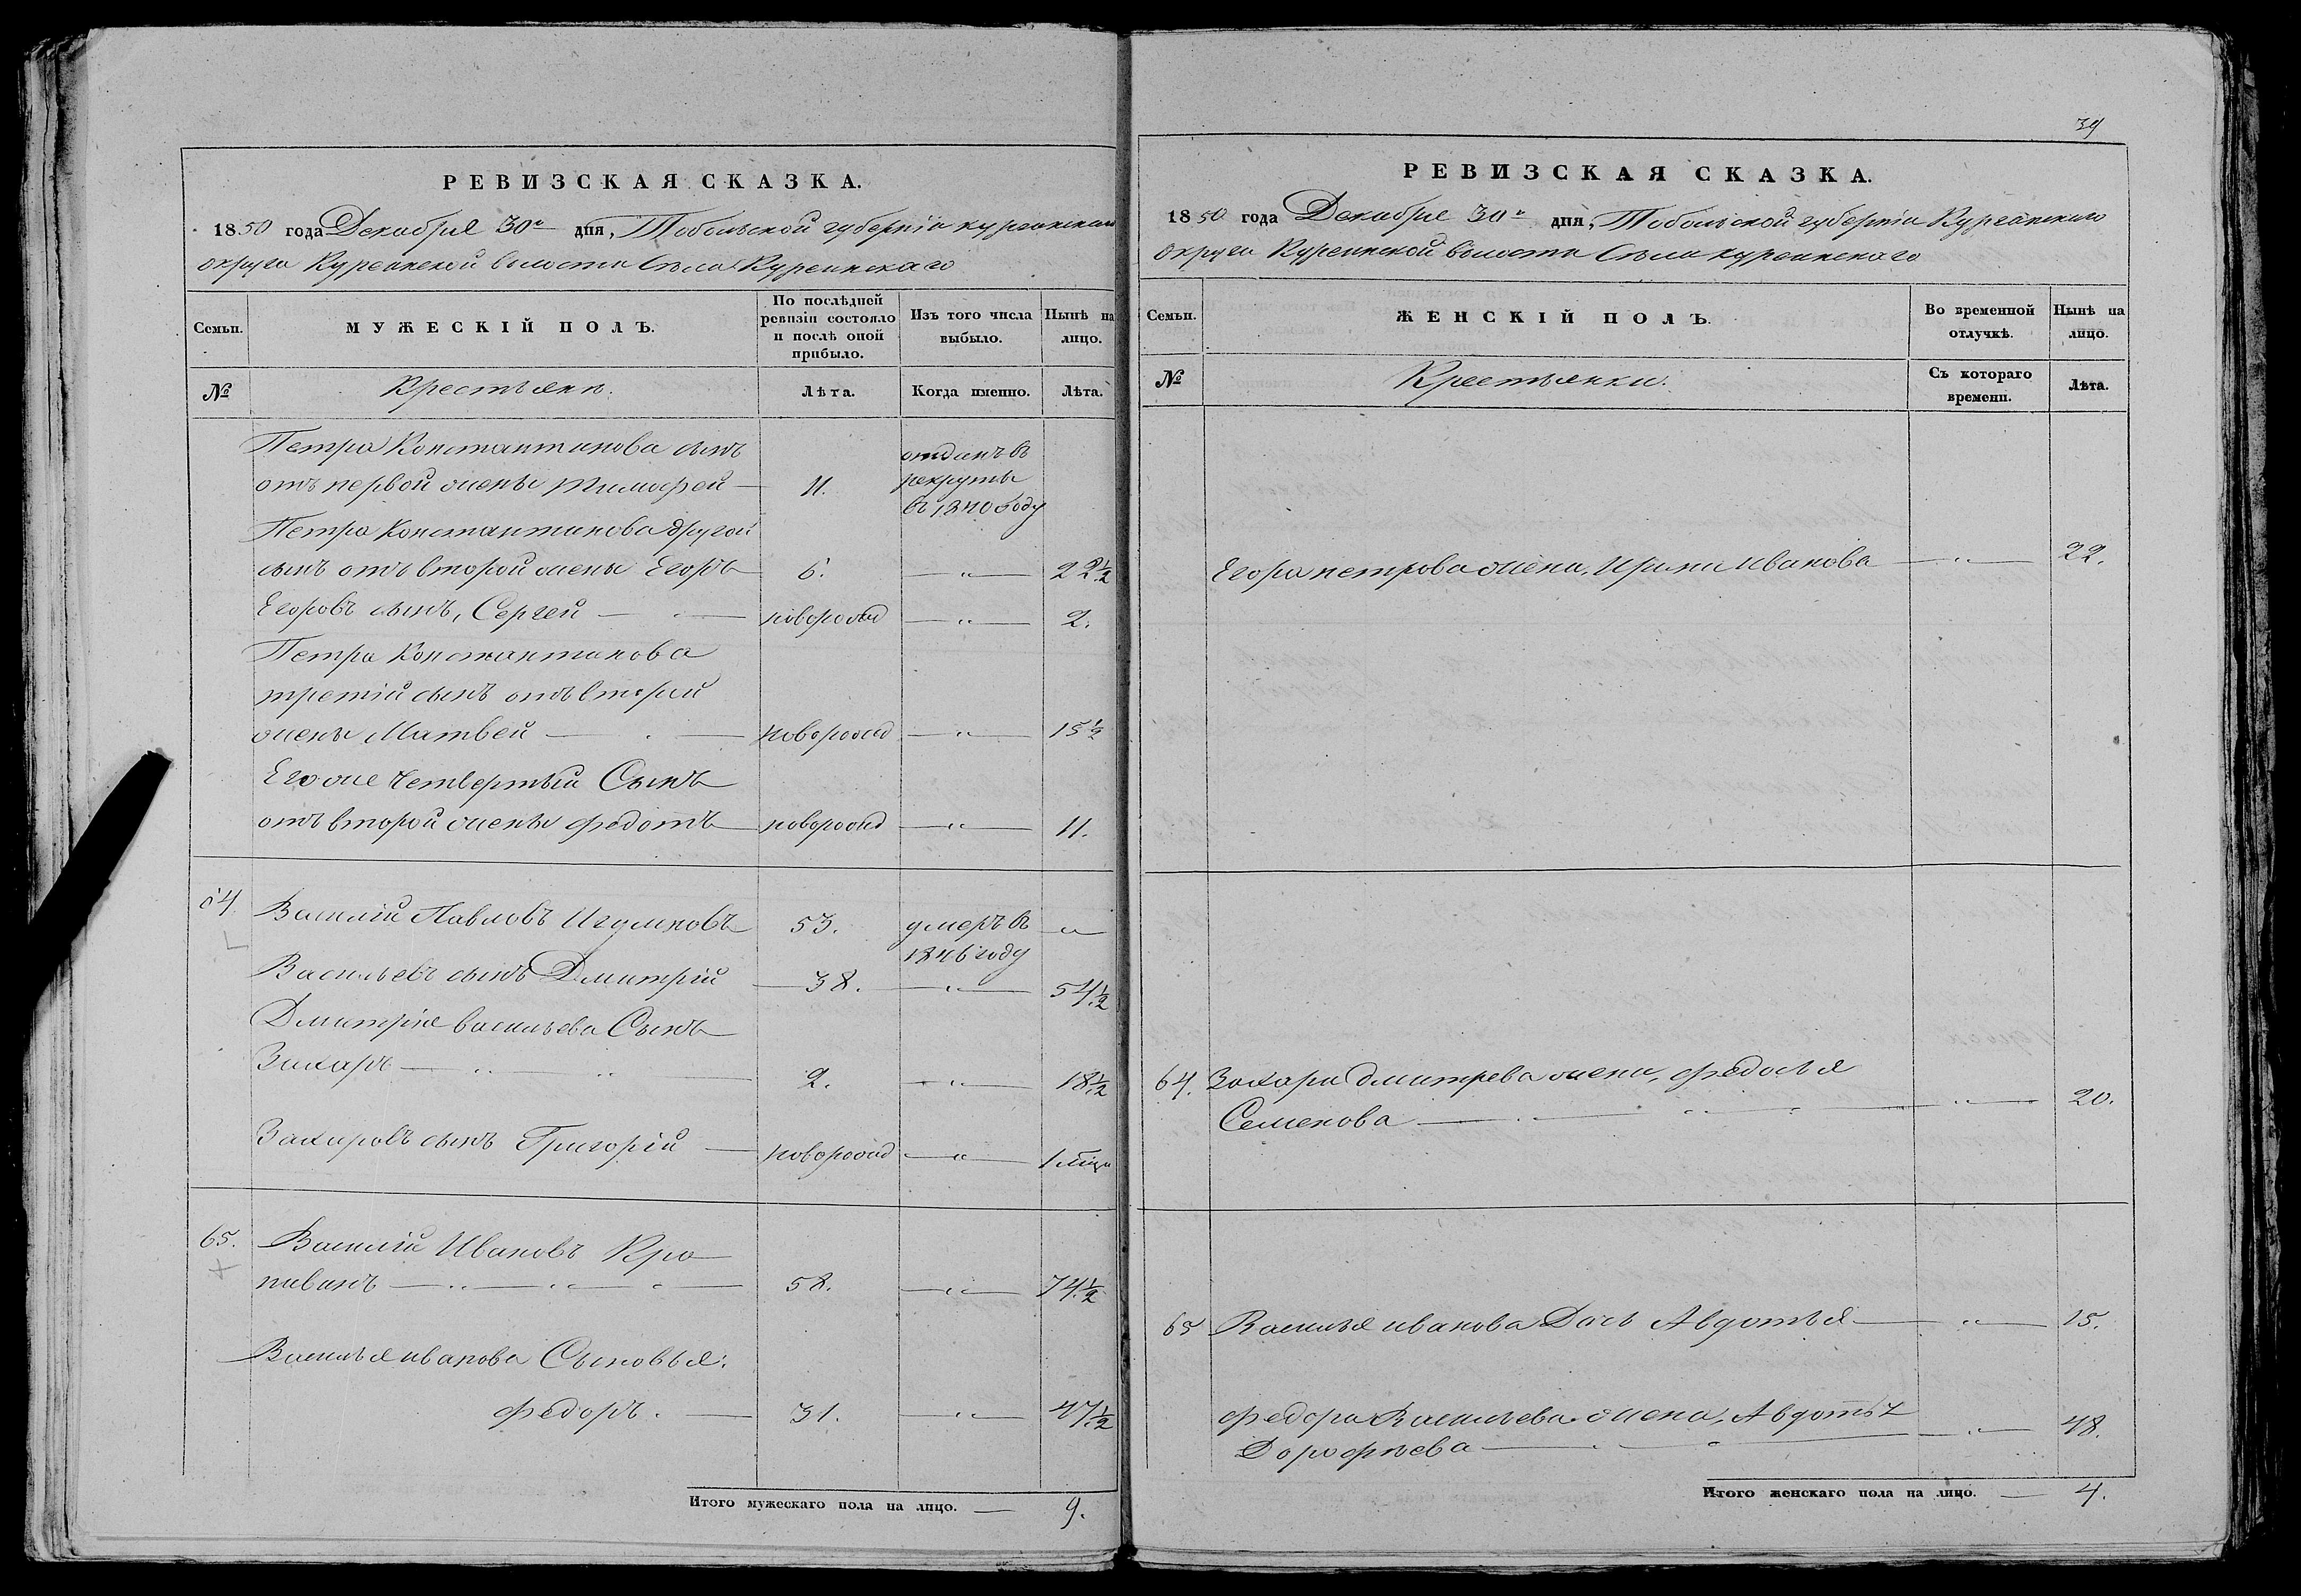 РЕВИЗСКАЯ СКАЗКА.
1850 года Декабря 30го дня, Тобольской губерніи Курганскаго
округа Курганской волости Села Куреинскаго
Семьи.
МУЖЕСКІЙ ПОЛЪ.
По послѣдней
ревизіи состояло
и послѣ оной
прибыло.
Изъ того числа
выбыло.
Нынѣ на
лицо.
№
Крестьяне.
Лѣта.
Когда именно.
Лѣта.
Петра Константинова сынъ
отъ первой жены Тимофей — 11. отданъ въ
рекруты
въ 1840 году
Петра Константинова другой
сынъ отъ второй жены Егоръ — 6. — " — 22 1/2
Егоровъ сынъ, Сергей — новорожд — " — 2.
Петра Константинова
третій сынъ отъ второй
жены Матвей — новорожд — " — 15 1/2
Его же четвертый Сынъ
отъ второй жены Федотъ — новорожд — " — 11.
64. Василій Павловъ Игумновъ 53. умеръ въ — " —
1846 году
Васильевъ сынъ Дмитрій — 38. — " — 54 1/2
Дмитрія Васильева Сынъ
Захаръ — " — " — 2. — " — 18 1/2
Захаровъ сынъ Григорій — новорожд — " — 1 мѣца
65. Василій Ивановъ Кро-
пивинъ — " — " — " — 58. — " — 74 1/2
Василья Иванова Сыновья:
Федоръ. — 31. — " — 47 1/2
Итого мужескаго пола на лицо. — 9.
39
РЕВИЗСКАЯ СКАЗКА.
1850 года Декабря 30го дня, Тобольской губерніи Курганскаго
округа Куреинской волости Села Куреинскаго
Семьи.
ЖЕНСКІЙ ПОЛЪ.
Во временной
отлучкѣ.
Нынѣ на
лицо.
№
Крестьянки.
Съ котораго
времени.
Лѣта.
Егора Петрова жена, Ирина Иванова — " — 22.
64. Захара Дмитрева жена, Федосья
Семенова — " — " — 20.
65 Василья Иванова Дочь Авдотья — " — 15.
Федора Васильева жена, Авдотья
Дорофѣева — " — 48.
Итого женскаго пола на лицо. — 4.